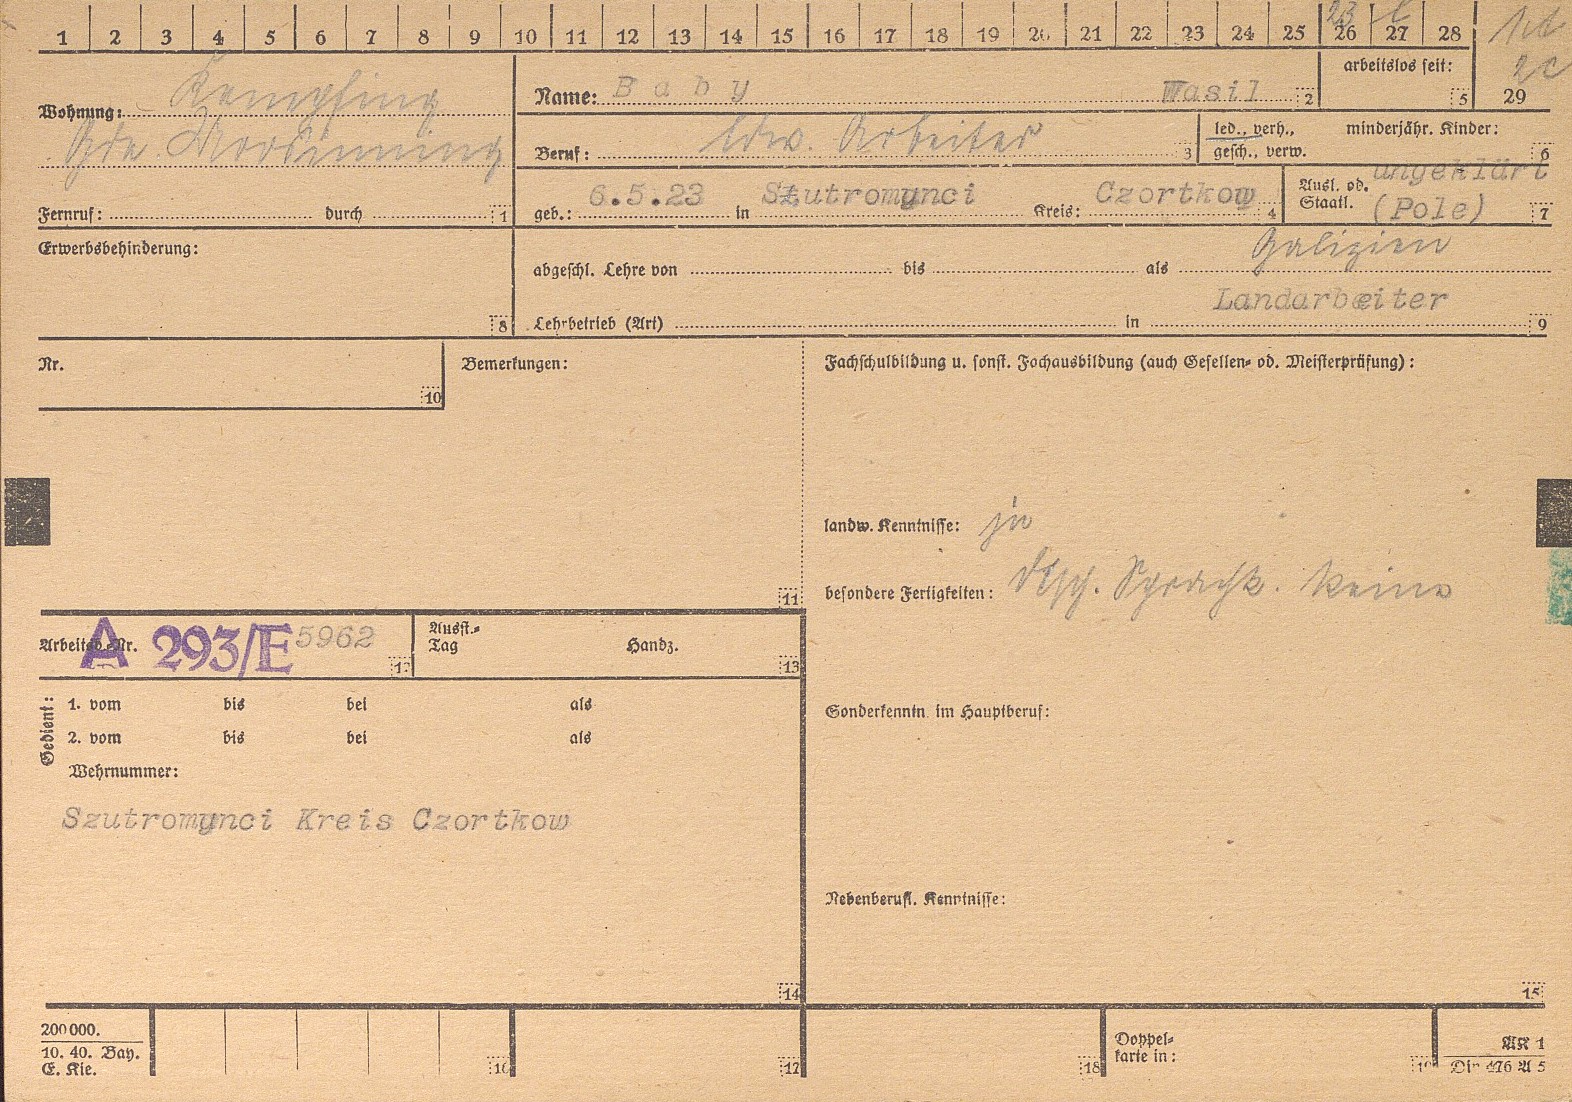 1 2 3 4 5 6 7 8 9 10 11 12 13 14 15 16 17 18 19 20 21 22 23 24 25 26 27 28
23
Wohnung:
Gde.
Fernruf: durch 1
Name: Baby Wasil 2
arbeitslos seit: 5
29
Beruf: ldw. Arbeiter 3
led., verh., gesch., verw.
minderjähr. Kinder: 6
geb.: 6.5.23 in Szutromynci Kreis: Czortkow 4
Ausl. od. Staatl. ungeklärt (Pole) 7
Erwerbsbehinderung: 8
Galizien
abgeschl. Lehre von bis als
Landarbeiter
Lehrbetrieb (Art) in 9
Nr. 10
Bemerkungen: 11
Fachschulbildung u. sonst. Fachausbildung (auch Gesellen- od. Meisterprüfung):
landw. Kenntnisse: ja
besondere Fertigkeiten: dtsch. Sprachk. keine
Arbeitsb. Nr. A 293/E 5962 12
Ausst.-Tag Handz. 13
Gedient:
1. vom bis bei als
2. vom bis bei als
Wehrnummer:
Szutromynci Kreis Czortkow
14
Sonderkenntn. im Hauptberuf:
Nebenberufl. Kenntnisse:
15
200 000.
10. 40. Bay.
E. Kie.
16 17 18
Doppelkarte in: 19
AK 1
Din 476 A 5